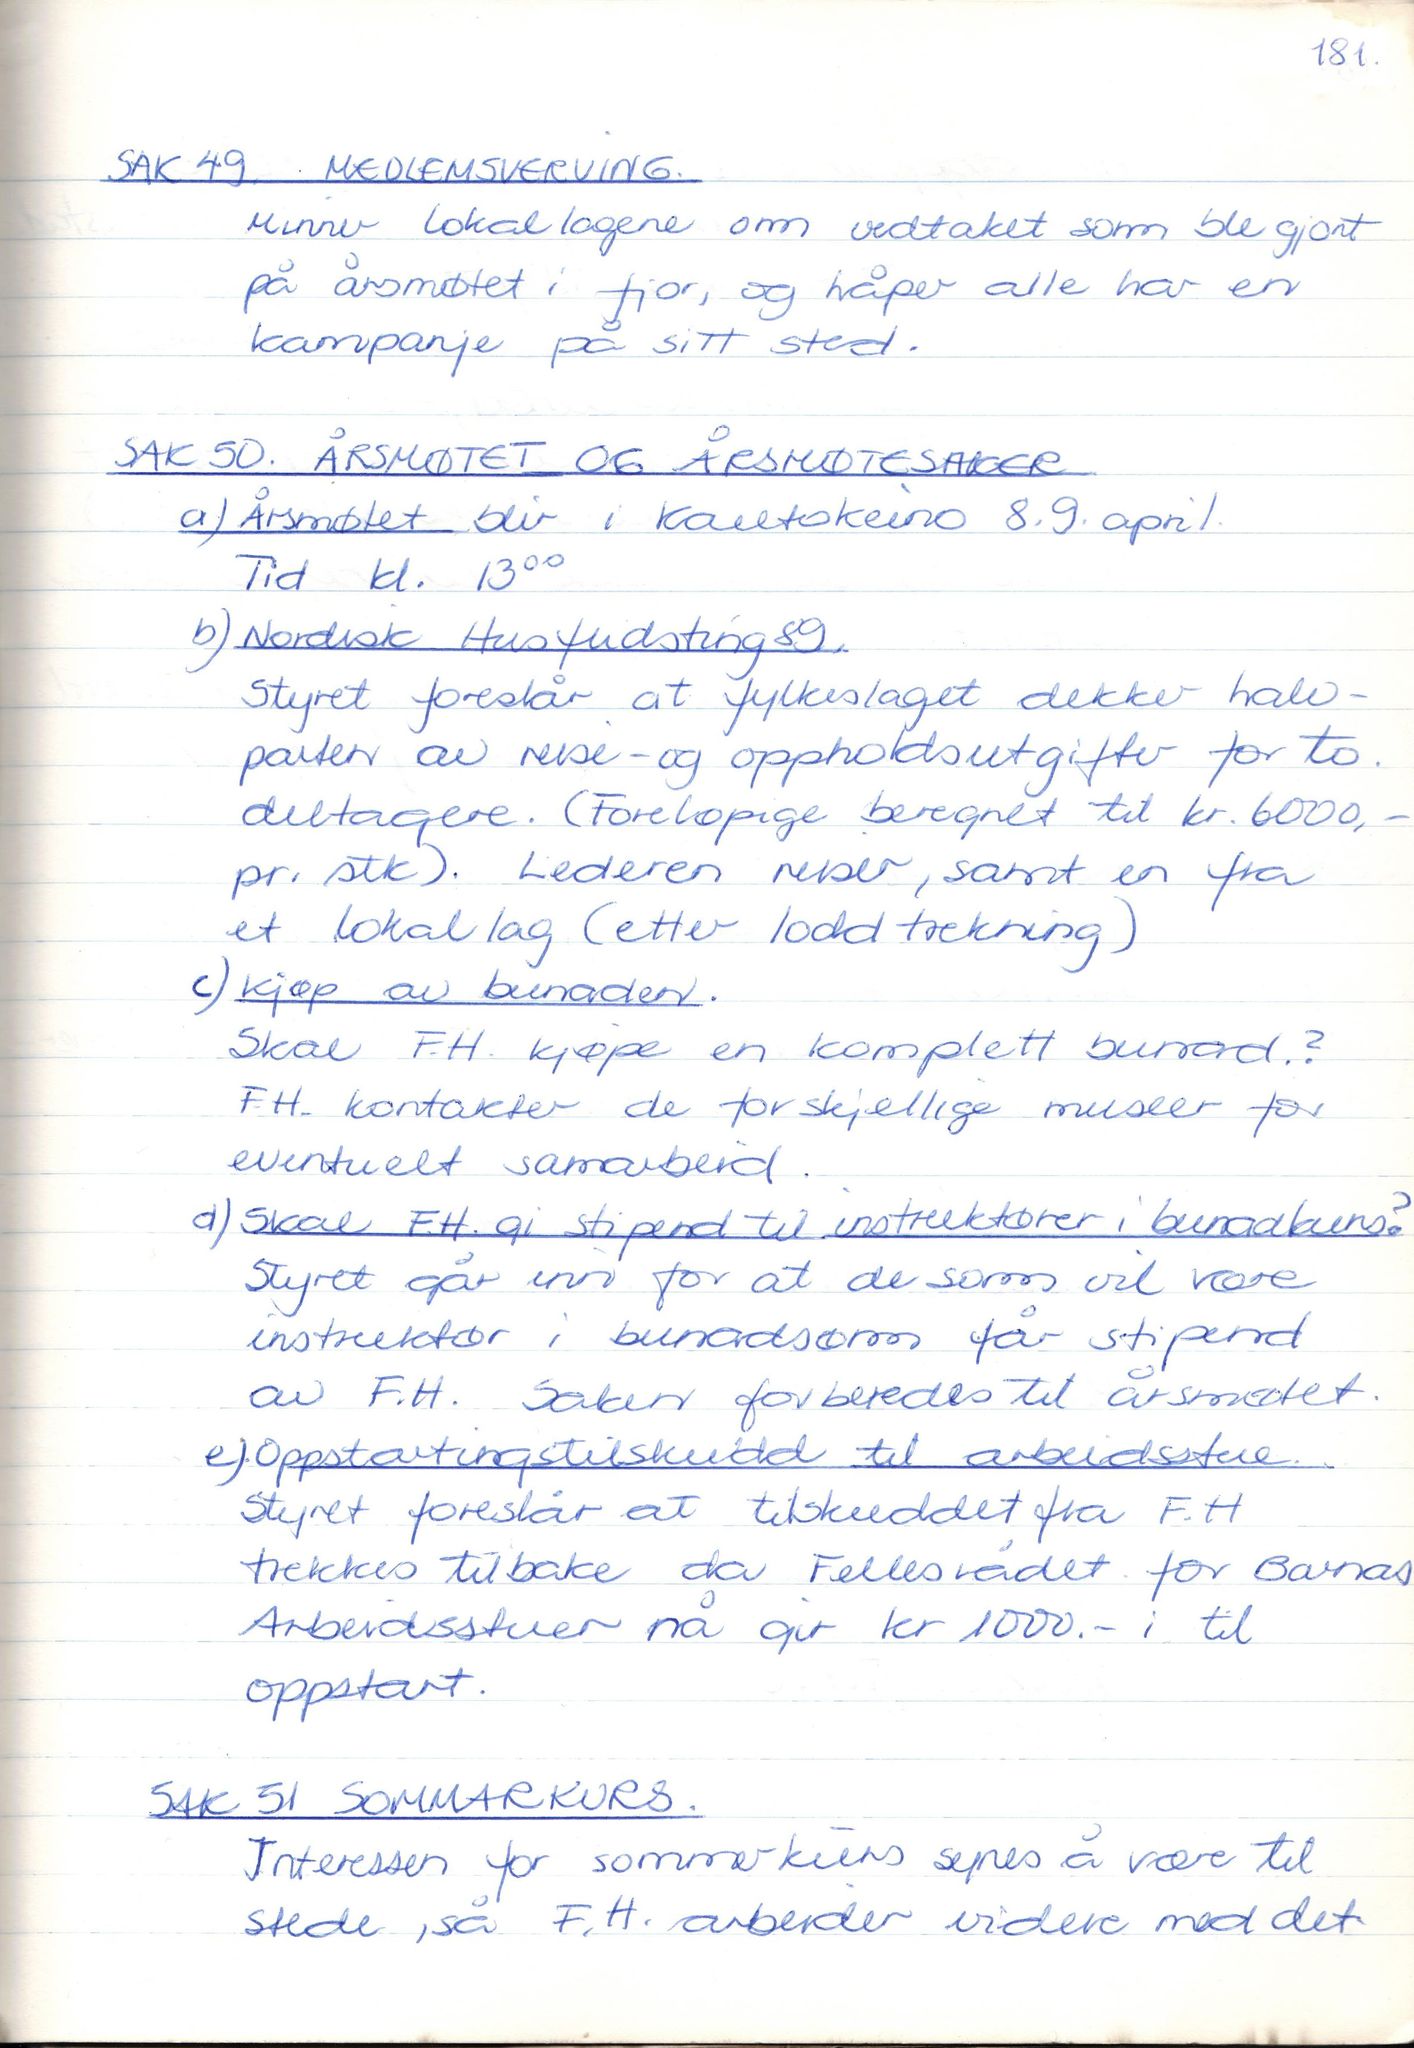 181.
SAK 49. MEDLEMSVERVING.
Minner lokallagene om vedtaket som ble gjort
på årsmøtet i fjor, og håper alle har en
kampanje på sitt sted.
SAK 50. ÅRSMØTET OG ÅRSMØTESAKER
a) Årsmøtet blir i Kautokeino 8.9. april.
Tid kl. 13⁰⁰
b) Nordisk Husflidsting 89.
Styret foreslår at fylkeslaget dekker halv-
parten av reise-og oppholdsutgifter for to.
deltagere. (Foreløpige beregnet til kr. 6000,-
pr. stk). Lederen reiser, samt en fra
et lokallag (etter loddtrekning)
c) Kjøp av bunaden.
Skal F.H. kjøpe en komplett bunad.?
F.H. kontakter de forskjellige museer for
eventuelt samarbeid.
d) Skal F.H. gi stipend til instruktører i bunadkurs?
Styret går inn for at de som vil være
instruktør i bunadsøm får stipend
av F.H. Saken forberedes til årsmøtet.
e). Oppstartingstilskudd til arbeidsstue.
Styret foreslår at tilskuddet fra F.H
trekkes tilbake da Fellesrådet for Barnas
Arbeidsstuer nå gir kr 1000.- i til
oppstart.
SAK 51 SOMMARKURS.
Interessen for sommerkurs synes å være til
stede, så F.H. arbeider videre med det